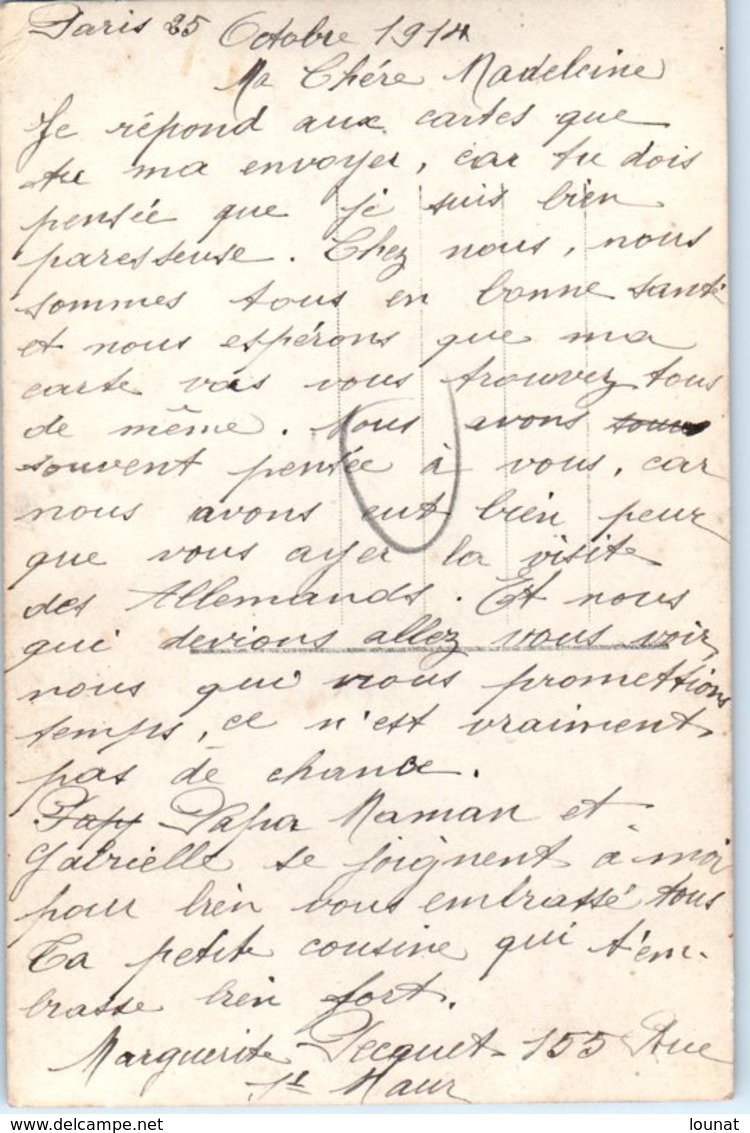 Paris 25 Octobre 1914
Ma Chére Madeleine
Je répond aux cartes que
tu ma envoyer, car tu dois
pensée que je suis bien
paresseuse. Chez nous, nous
sommes tous en bonne santé
et nous espérons que ma
carte vas vous trouvez tous
de même. Nous avons
souvent pensée à vous, car
nous avons eut bien peur
que vous ayer la visite
des Allemands. Et nous
qui devions allez vous voir,
nous qui nous promettions
temps, ce n'est vraiment
pas de chance.
Papa Maman et
Gabrielle se joignent à moi
pour bien vous embrassé tous
Ta petite cousine qui t'em-
brasse bien fort.
Marguerite Decquet 155 Rue
St Maur
lounat